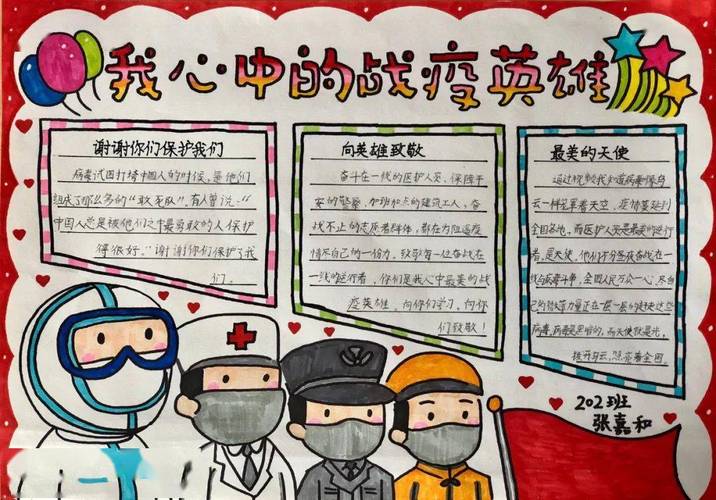 我心中的战疫英雄
谢谢你们保护我们
病毒试图打垮中国人的时候，是他们
组成了那么多的“敢死队”。有人曾说：“
中国人总是被他们之中最勇敢的人保护
得很好。”谢谢你们保护了我
们。
向英雄致敬
奋斗在一线的医护人员、保障平
安的警察、加班加点的建筑工人、奋
战不止的志愿者群体，都在为阻遏疫
情尽自己的一份力。致敬每一位奋战在
一线的逆行者，你们是我心中最美的战
疫英雄，向你们学习，向你
们致敬！
最美的天使
通过视频我知道病毒像乌
云一样笼罩着天空，疫情蔓延到
全国各地，而医护人员是最美的逆行
者，是天使，他们不分昼夜奋战在一
线与病毒斗争，全国人民万众一心，尽自
己的微薄力量正在一层一层的
病毒，病毒是黑暗的，而天使就是光，
拨开乌云，照亮着全国
202班
张嘉和